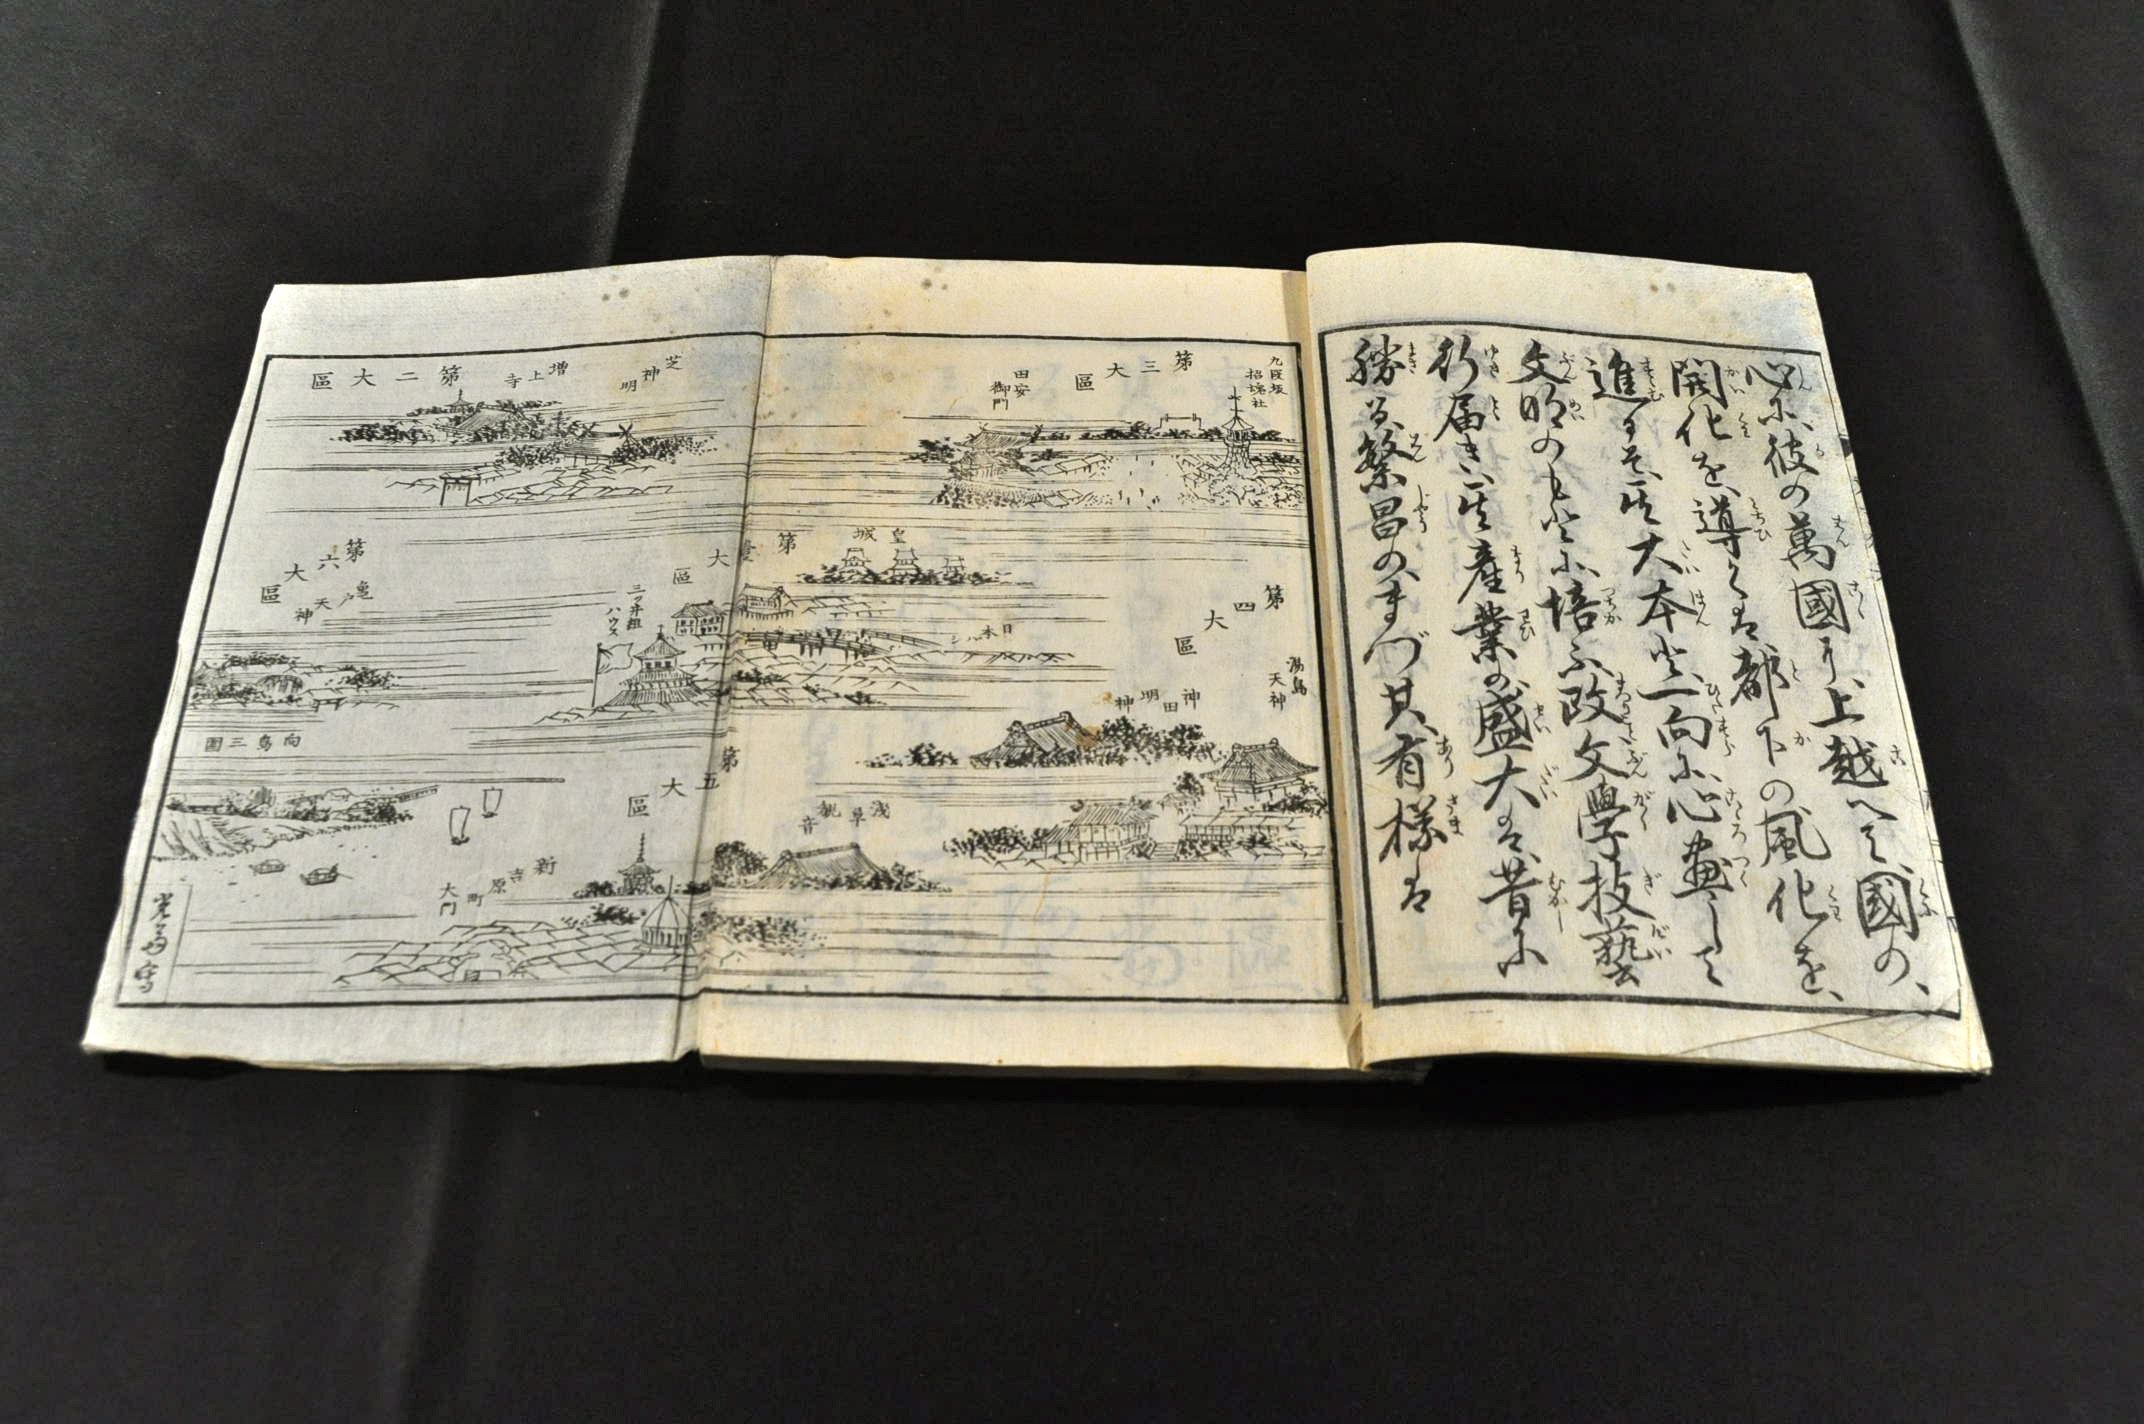 心に彼の萬國に上越へて國の、
開化を導くは都下の風化を、
進るぞ其大本と一向に心盡して
文明のもとに培ふ政文學技藝
行届き其産業の盛大は昔に
勝る繁昌のまづ其有樣は
九段坂
招魂社
第三大區
田安
御門
芝神明
増上寺
第二大區
皇城
第壹大區
日本ハシ
三ツ井組
ハウス
第四大區
湯島
天神
神田明神
第六大區
亀戸天神
向島三囲
第五大區
浅草観音
新吉原町
大門